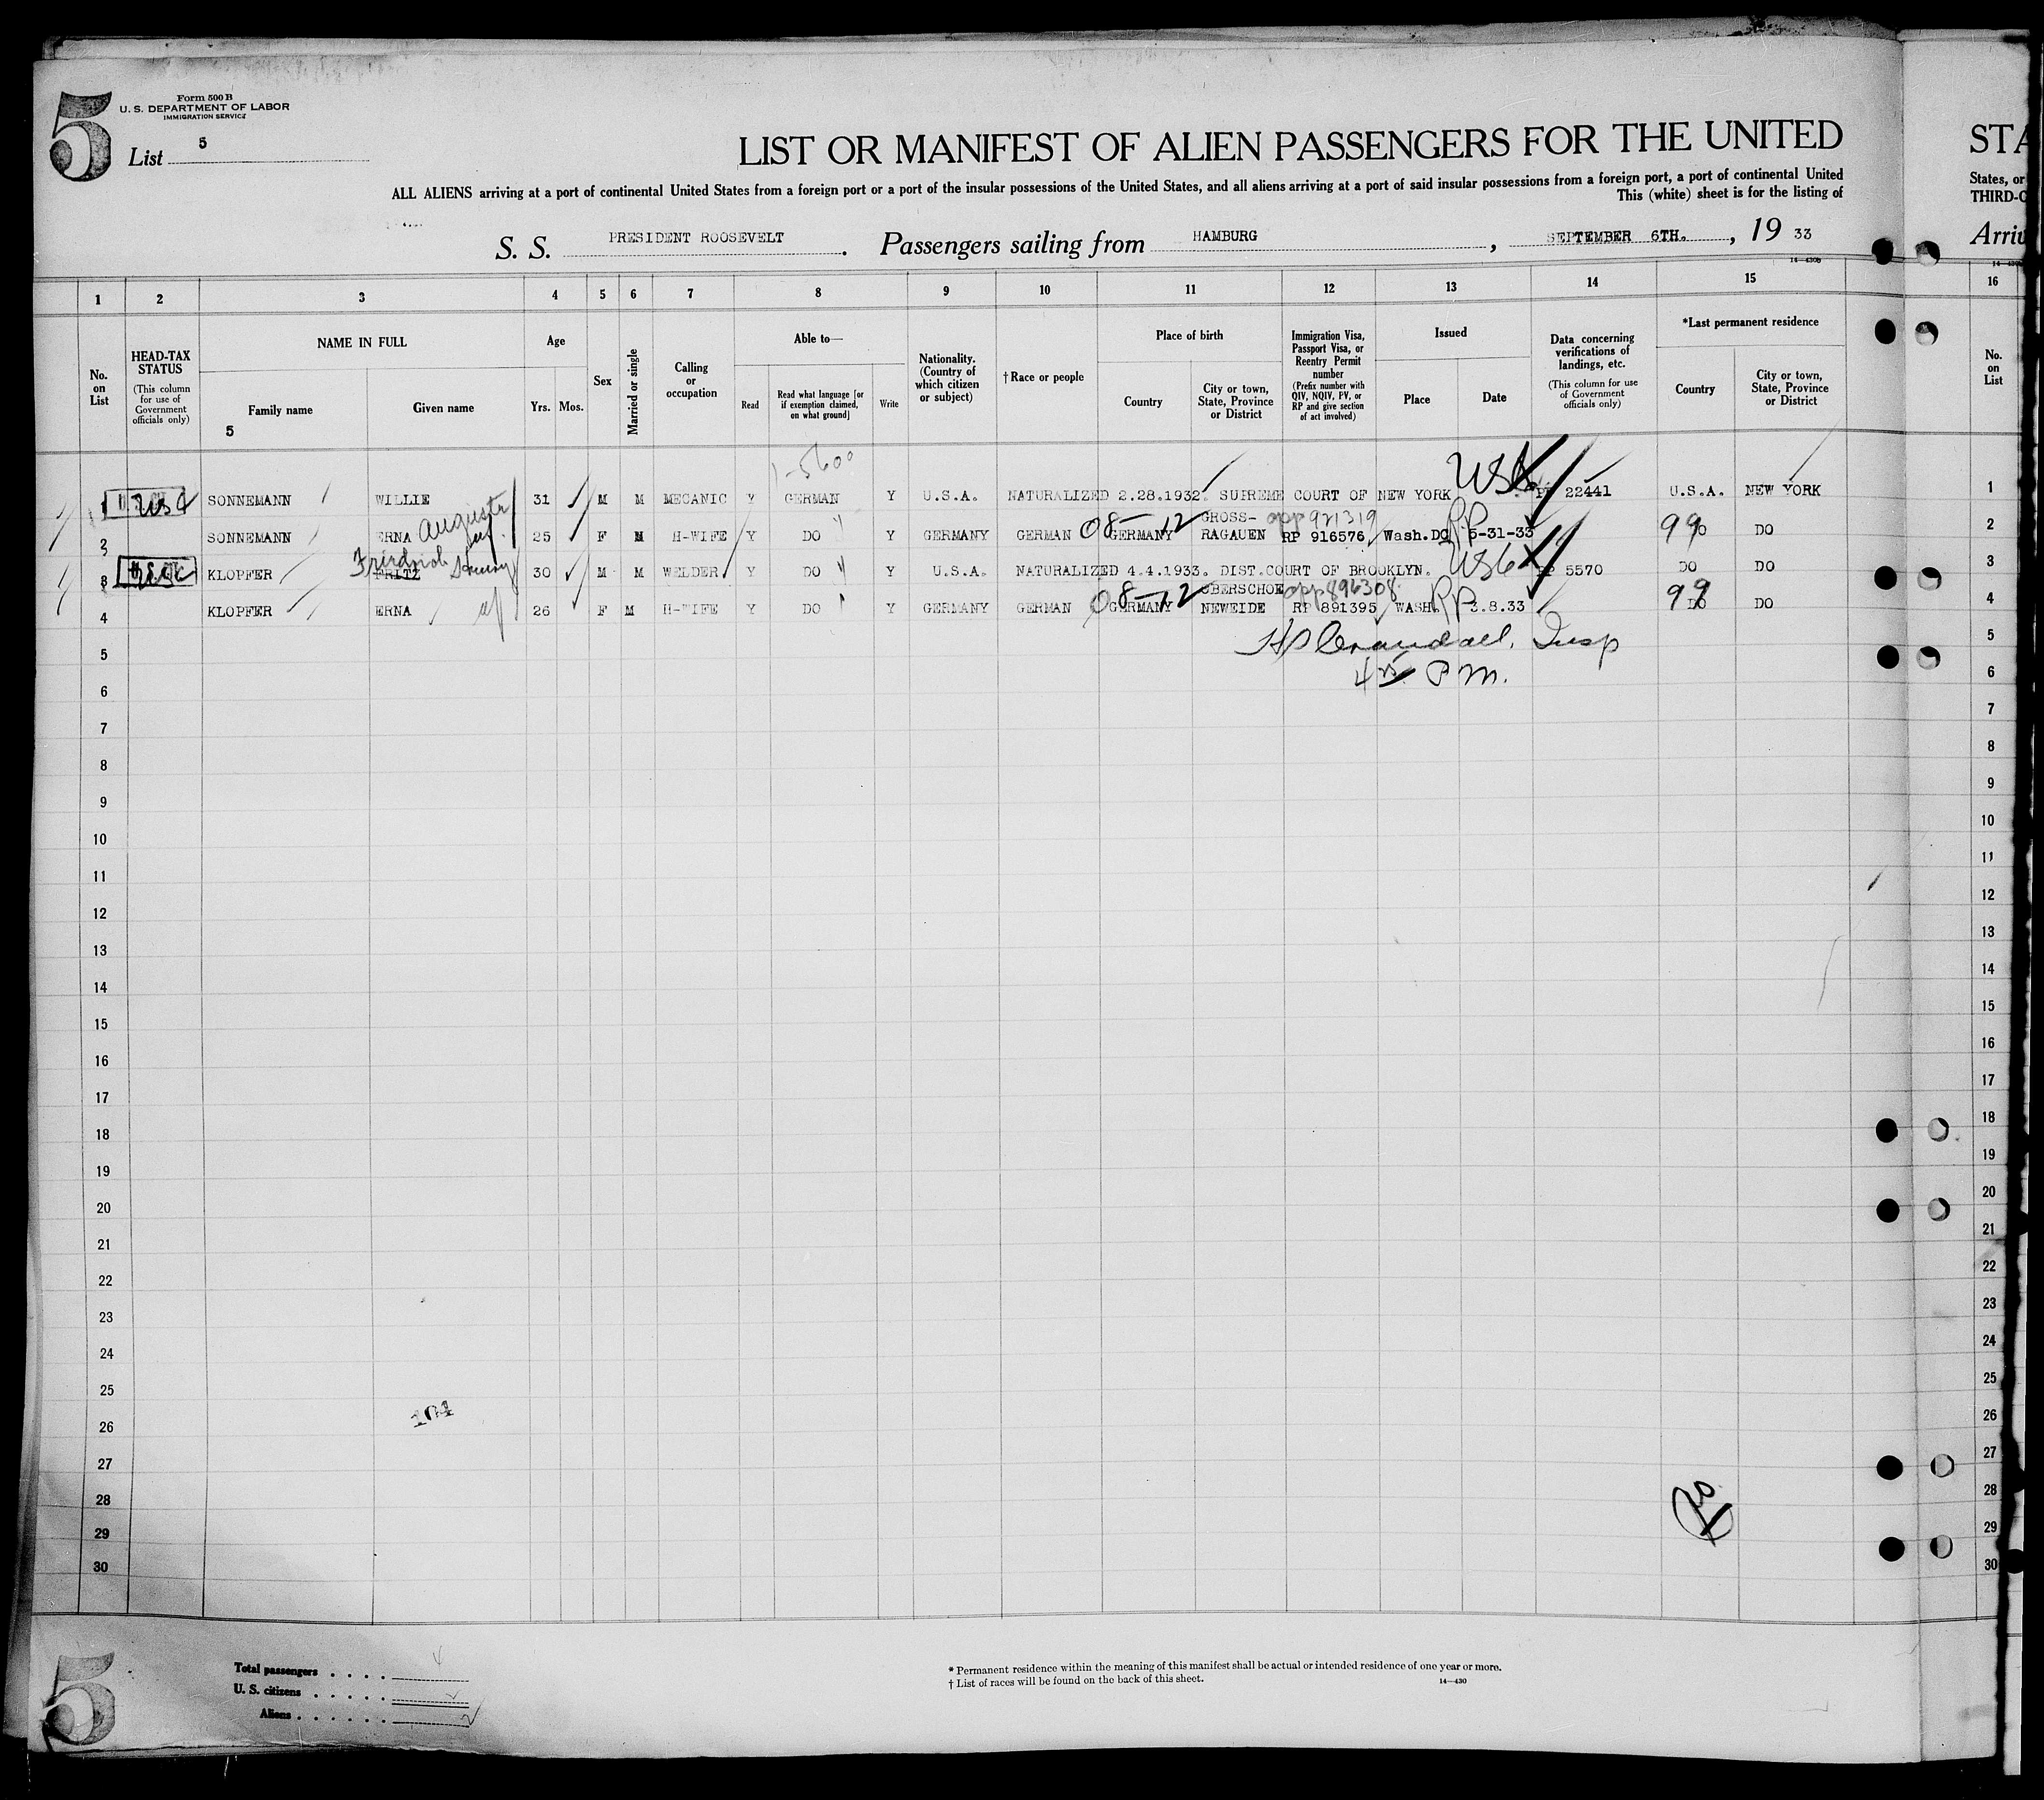 5
Form 500 B
U. S. DEPARTMENT OF LABOR
IMMIGRATION SERVICE
List 5
LIST OR MANIFEST OF ALIEN PASSENGERS FOR THE UNITED
STA
ALL ALIENS arriving at a port of continental United States from a foreign port or a port of the insular possessions of the United States, and all aliens arriving at a port of said insular possessions from a foreign port, a port of continental United
States, or
This (white) sheet is for the listing of
THIRD-C
S. S. PRESIDENT ROOSEVELT. Passengers sailing from HAMBURG, SEPTEMBER 6TH., 19 33
Arriv
14—430b
1 2 3 4 5 6 7 8 9 10 11 12 13 14 15 16
No. on List
HEAD-TAX STATUS
(This column for use of Government officials only)
NAME IN FULL
Family name
5
Given name
Age
Yrs. Mos.
Sex
Married or single
Calling or occupation
Able to—
Read
Read what language [or if exemption claimed, on what ground]
Write
Nationality. (Country of which citizen or subject)
† Race or people
Place of birth
Country
City or town, State, Province or District
Immigration Visa, Passport Visa, or Reentry Permit number
(Prefix number with QIV, NQIV, PV, or RP and give section of act involved)
Issued
Place
Date
Data concerning verifications of landings, etc.
(This column for use of Government officials only)
*Last permanent residence
Country
City or town, State, Province or District
No. on List
1-5600
USC
1 USC SONNEMANN WILLIE 31 M M MECANIC Y GERMAN Y U.S.A. NATURALIZED 2.28.1932. SUPREME COURT OF NEW YORK PP 22441 U.S.A. NEW YORK 1
Auguste GROSS- app 921319
2 SONNEMANN ERNA 25 F M H-WIFE Y DO Y GERMANY GERMAN 08-12 GERMANY RAGAUEN RP 916576 Wash.DC RP 5-31-33 99 DO DO 2
Friedrich USC
3 USC KLOPFER FRITZ 30 M M WELDER Y DO Y U.S.A. NATURALIZED 4.4.1933. DIST.COURT OF BROOKLYN. PP 5570 DO DO 3
OBERSCHOE app 896308
4 KLOPFER ERNA 26 F M H-WIFE Y DO Y GERMANY GERMAN 08-12 GERMANY NEWEIDE RP 891395 WASH. RP 3.8.33 99 DO DO 4
5 H Crandall, Insp 5
6 P.M. 6
7 7
8 8
9 9
10 10
11 11
12 12
13 13
14 14
15 15
16 16
17 17
18 18
19 19
20 20
21 21
22 22
23 23
24 24
25 25
26 104 26
27 27
28 28
29 29
30 30
5
Total passengers . . . . 4
U. S. citizens . . . . . 2
Aliens . . . . . . 2
* Permanent residence within the meaning of this manifest shall be actual or intended residence of one year or more.
† List of races will be found on the back of this sheet.
14—430